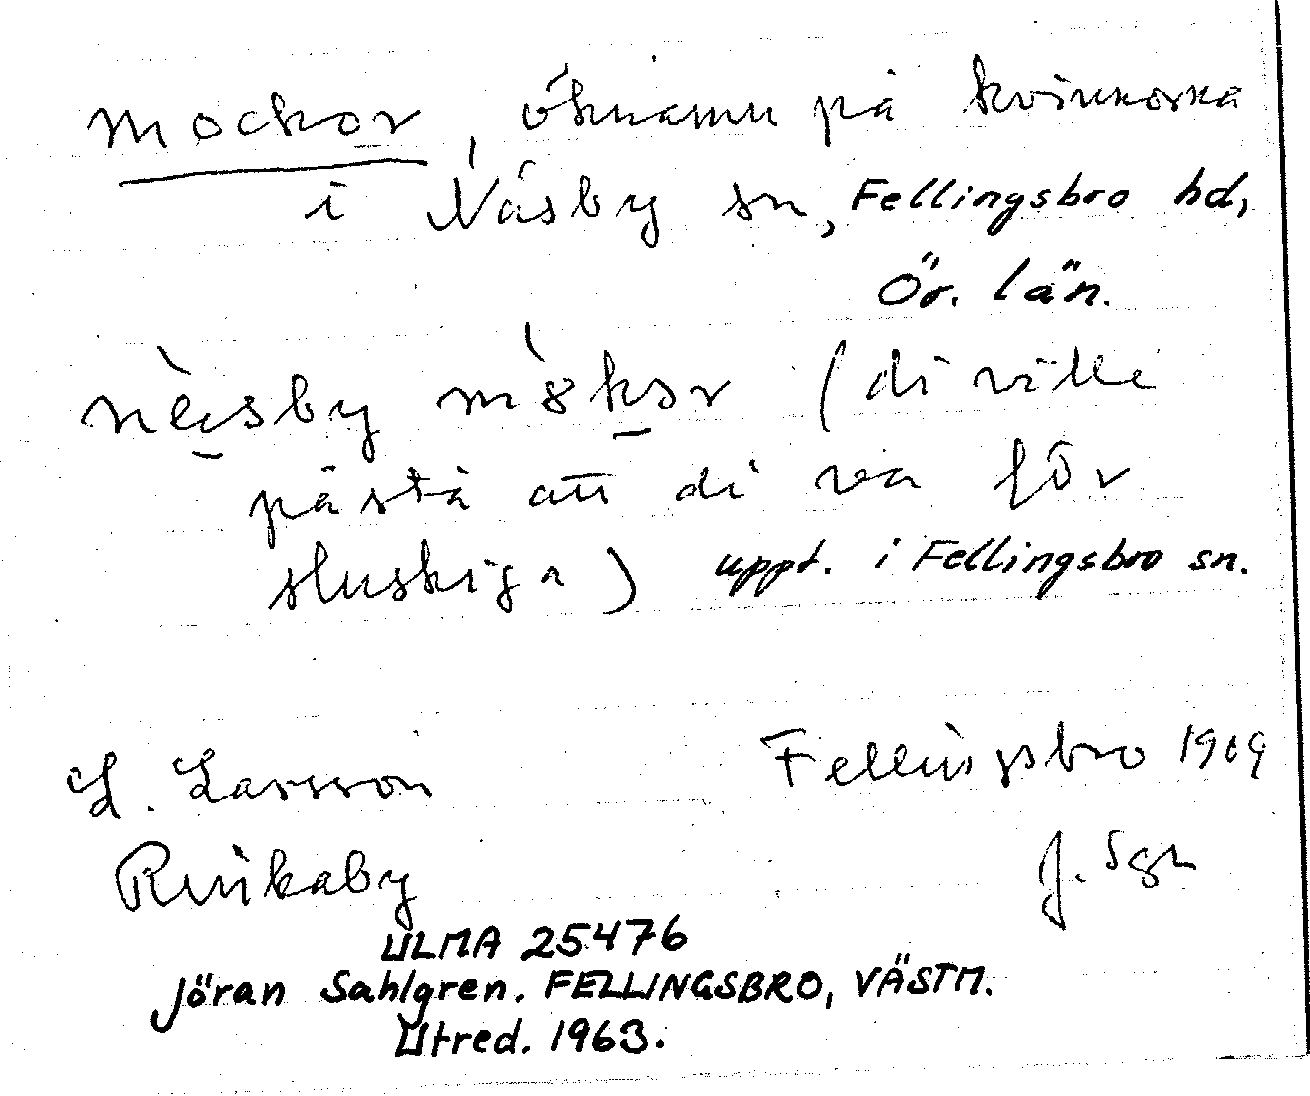 mockor, öknamn på kvinnorna
i Näsby sn, Fellingsbro hd,
Ör. län.
näsby mökor (di ville
påstå att di va för
sluskiga) uppt. i Fellingsbro sn.
L. Larsson Fellingsbro 1909
Rinkaby J. Sgn
ULMA 25476
Jöran Sahlgren. FELLINGSBRO, VÄSTM.
Utred. 1963.